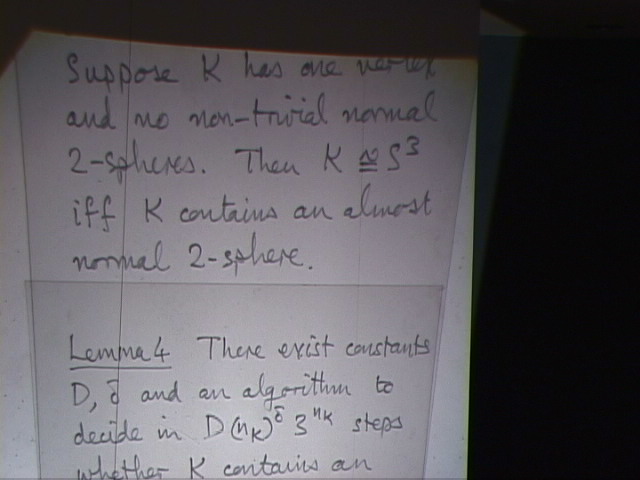 Suppose K has one vertex
and no non-trivial normal
2-spheres. Then K ≅ S³
iff K contains an almost
normal 2-sphere.
Lemma 4 There exist constants
D, δ and an algorithm to
decide in D(n_K)^δ 3^{n_K} steps
whether K contains an